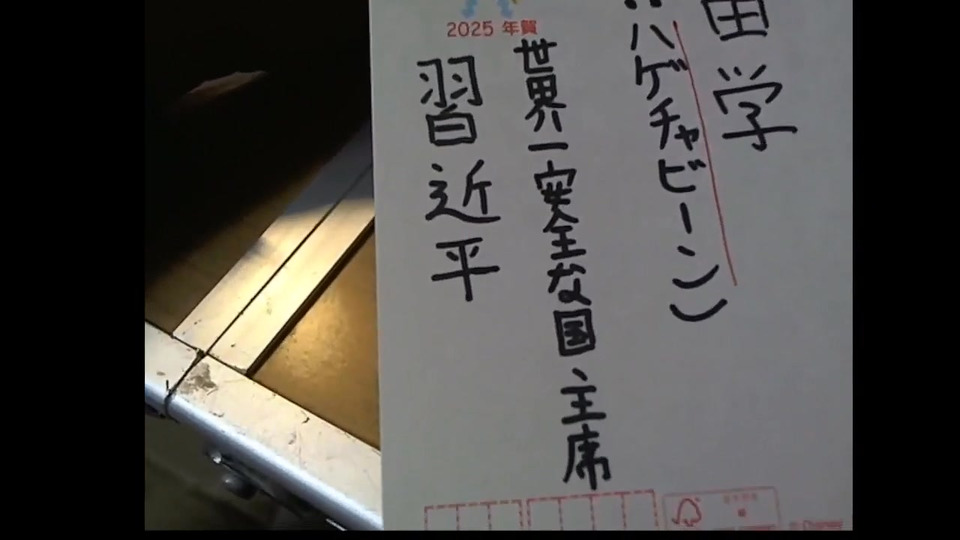 田学
ハゲチャビーン)
世界一安全な国 主席
習近平
2025 年賀